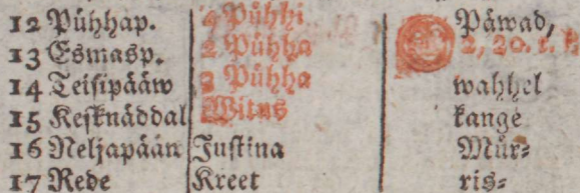 12 Pühhap. 4 Pühhi Päwad,
13 Esmasp. 2 Pühha 2, 20. t.
14 Teisipääw 3 Pühha wahhel
15 Kesknäddal Witus kange
16 Neljapään Justina Mür⸗
17 Rede Kreet ris⸗